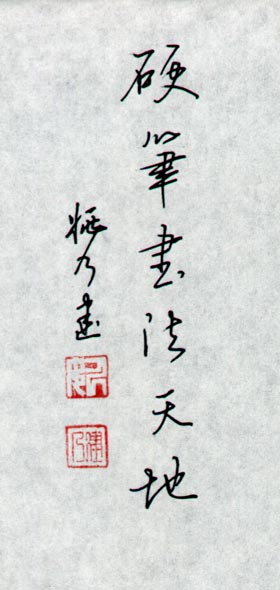 硬筆書法天地
乃建